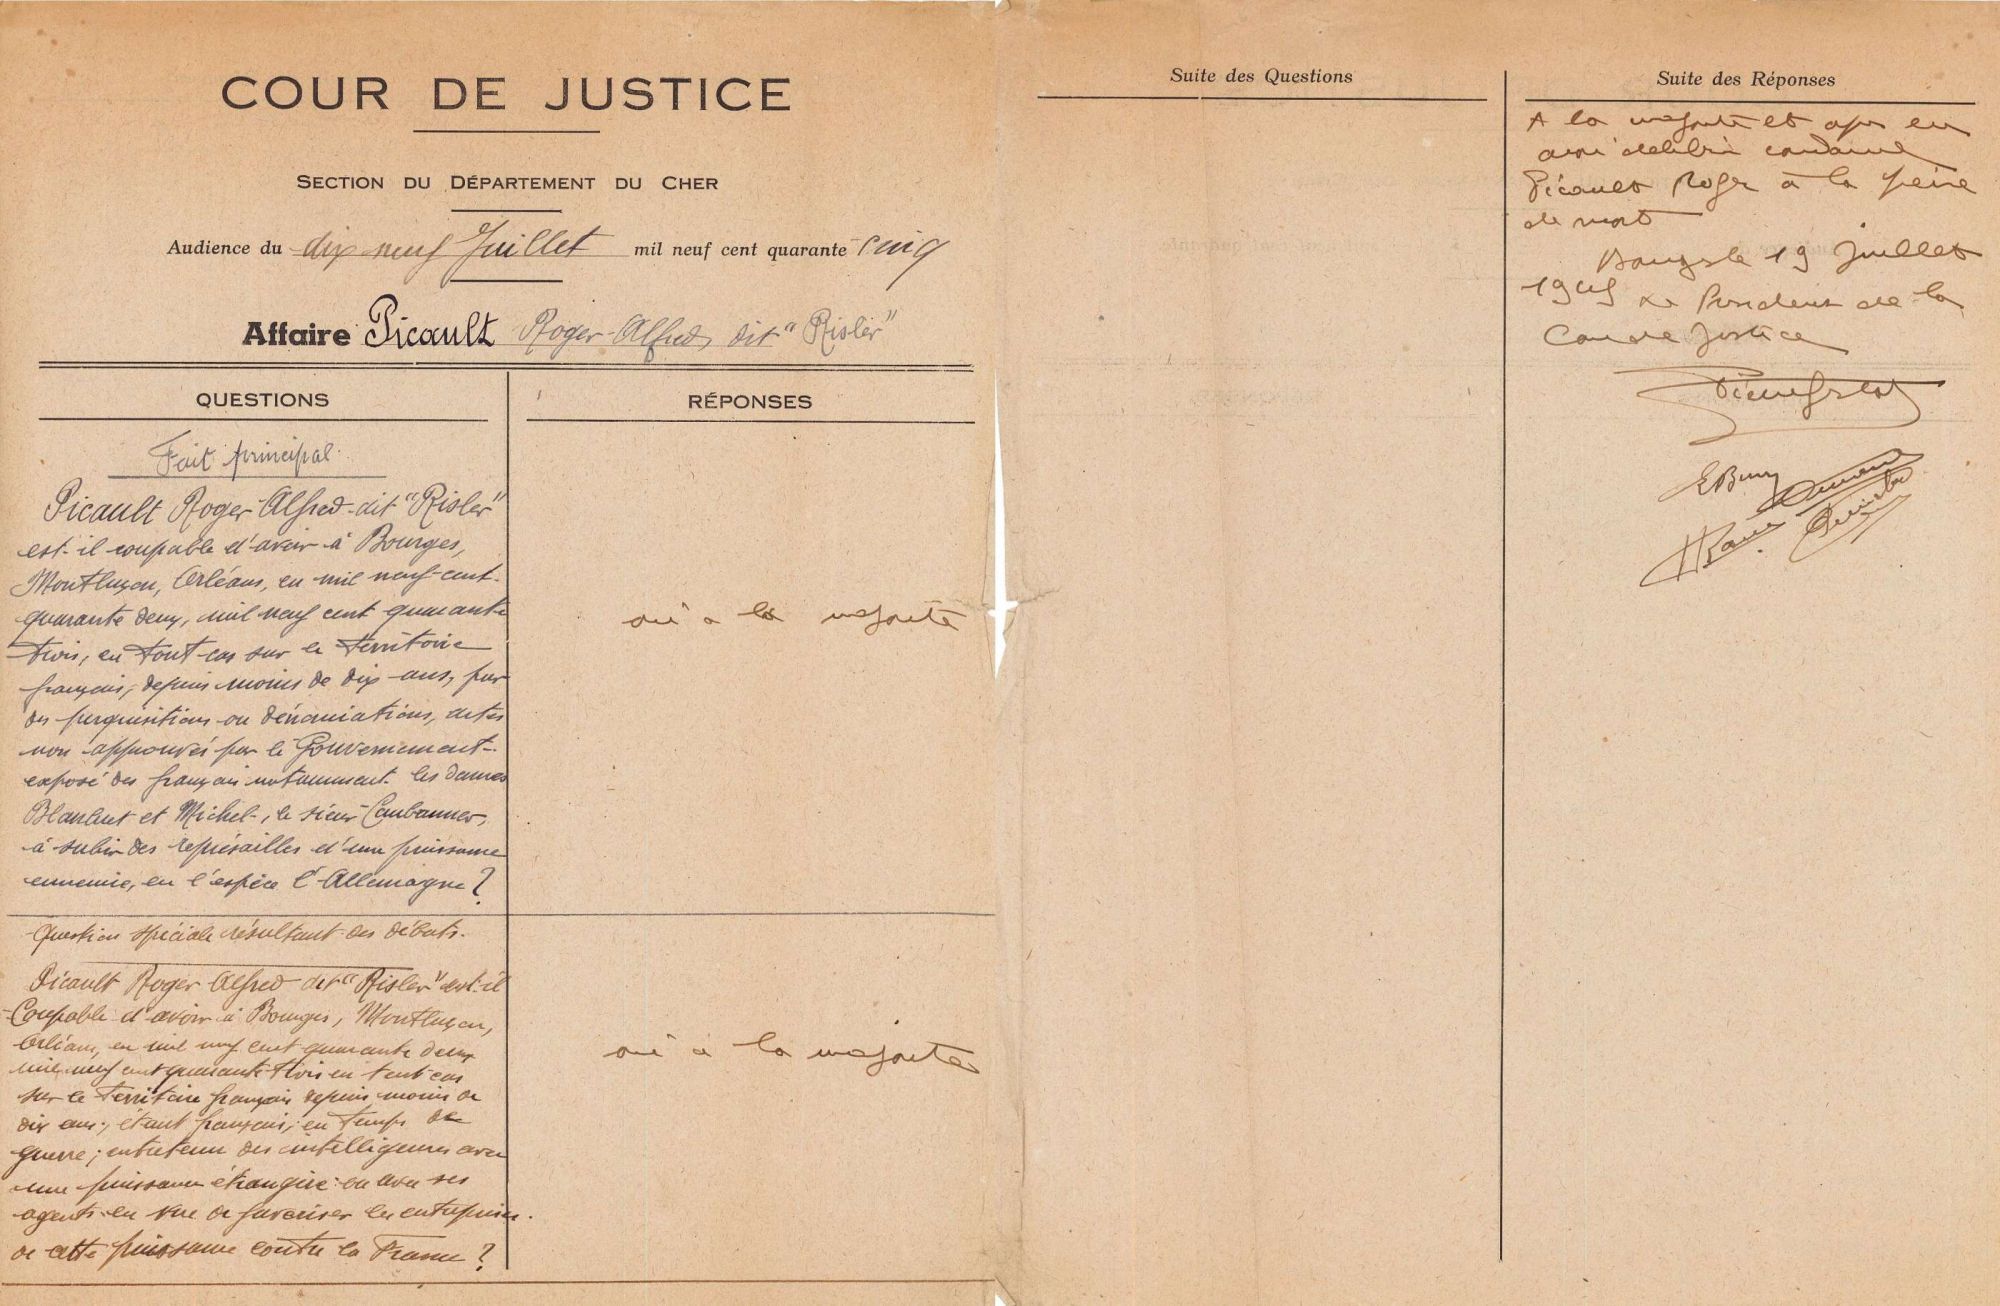 COUR DE JUSTICE
SECTION DU DÉPARTEMENT DU CHER
Audience du dix neuf Juillet mil neuf cent quarante cinq
Affaire Picault Roger-Alfred, dit "Risler"
QUESTIONS
Fait principal.
Picault Roger-Alfred-dit "Risler"
est-il coupable d'avoir à Bourges,
Montluçon, Orléans, en mil neuf-cent-
quarante deux, mil neuf cent quarante
trois, en tout cas sur le territoire
français, depuis moins de dix ans, par
des perquisitions ou dénonciations, actes
non approuvés par le Gouvernement-
exposé des français notamment les dames
et Michel, le sieur
à subir des représailles d'une puissance
ennemie, en l'espèce l'Allemagne ?
Question spéciale résultant des débats.
Picault Roger Alfred dit "Risler" est-il
Coupable d'avoir à Bourges, Montluçon,
Orléans, en mil neuf cent quarante deux
mil neuf cent quarante trois en tout cas
sur le territoire français depuis moins de
dix ans, étant français, en temps de
guerre, entretenu des intelligences avec
une puissance étrangère ou avec ses
agents en vue de favoriser les entreprises
de cette puissance contre la France ?
RÉPONSES
oui à la majorité
oui à la majorité
Suite des Questions
Suite des Réponses
A la majorité et après en
avoir délibéré condamne
Picault Roger à la peine
de mort
Bourges le 19 Juillet
1945 Le Président de la
Cour de Justice